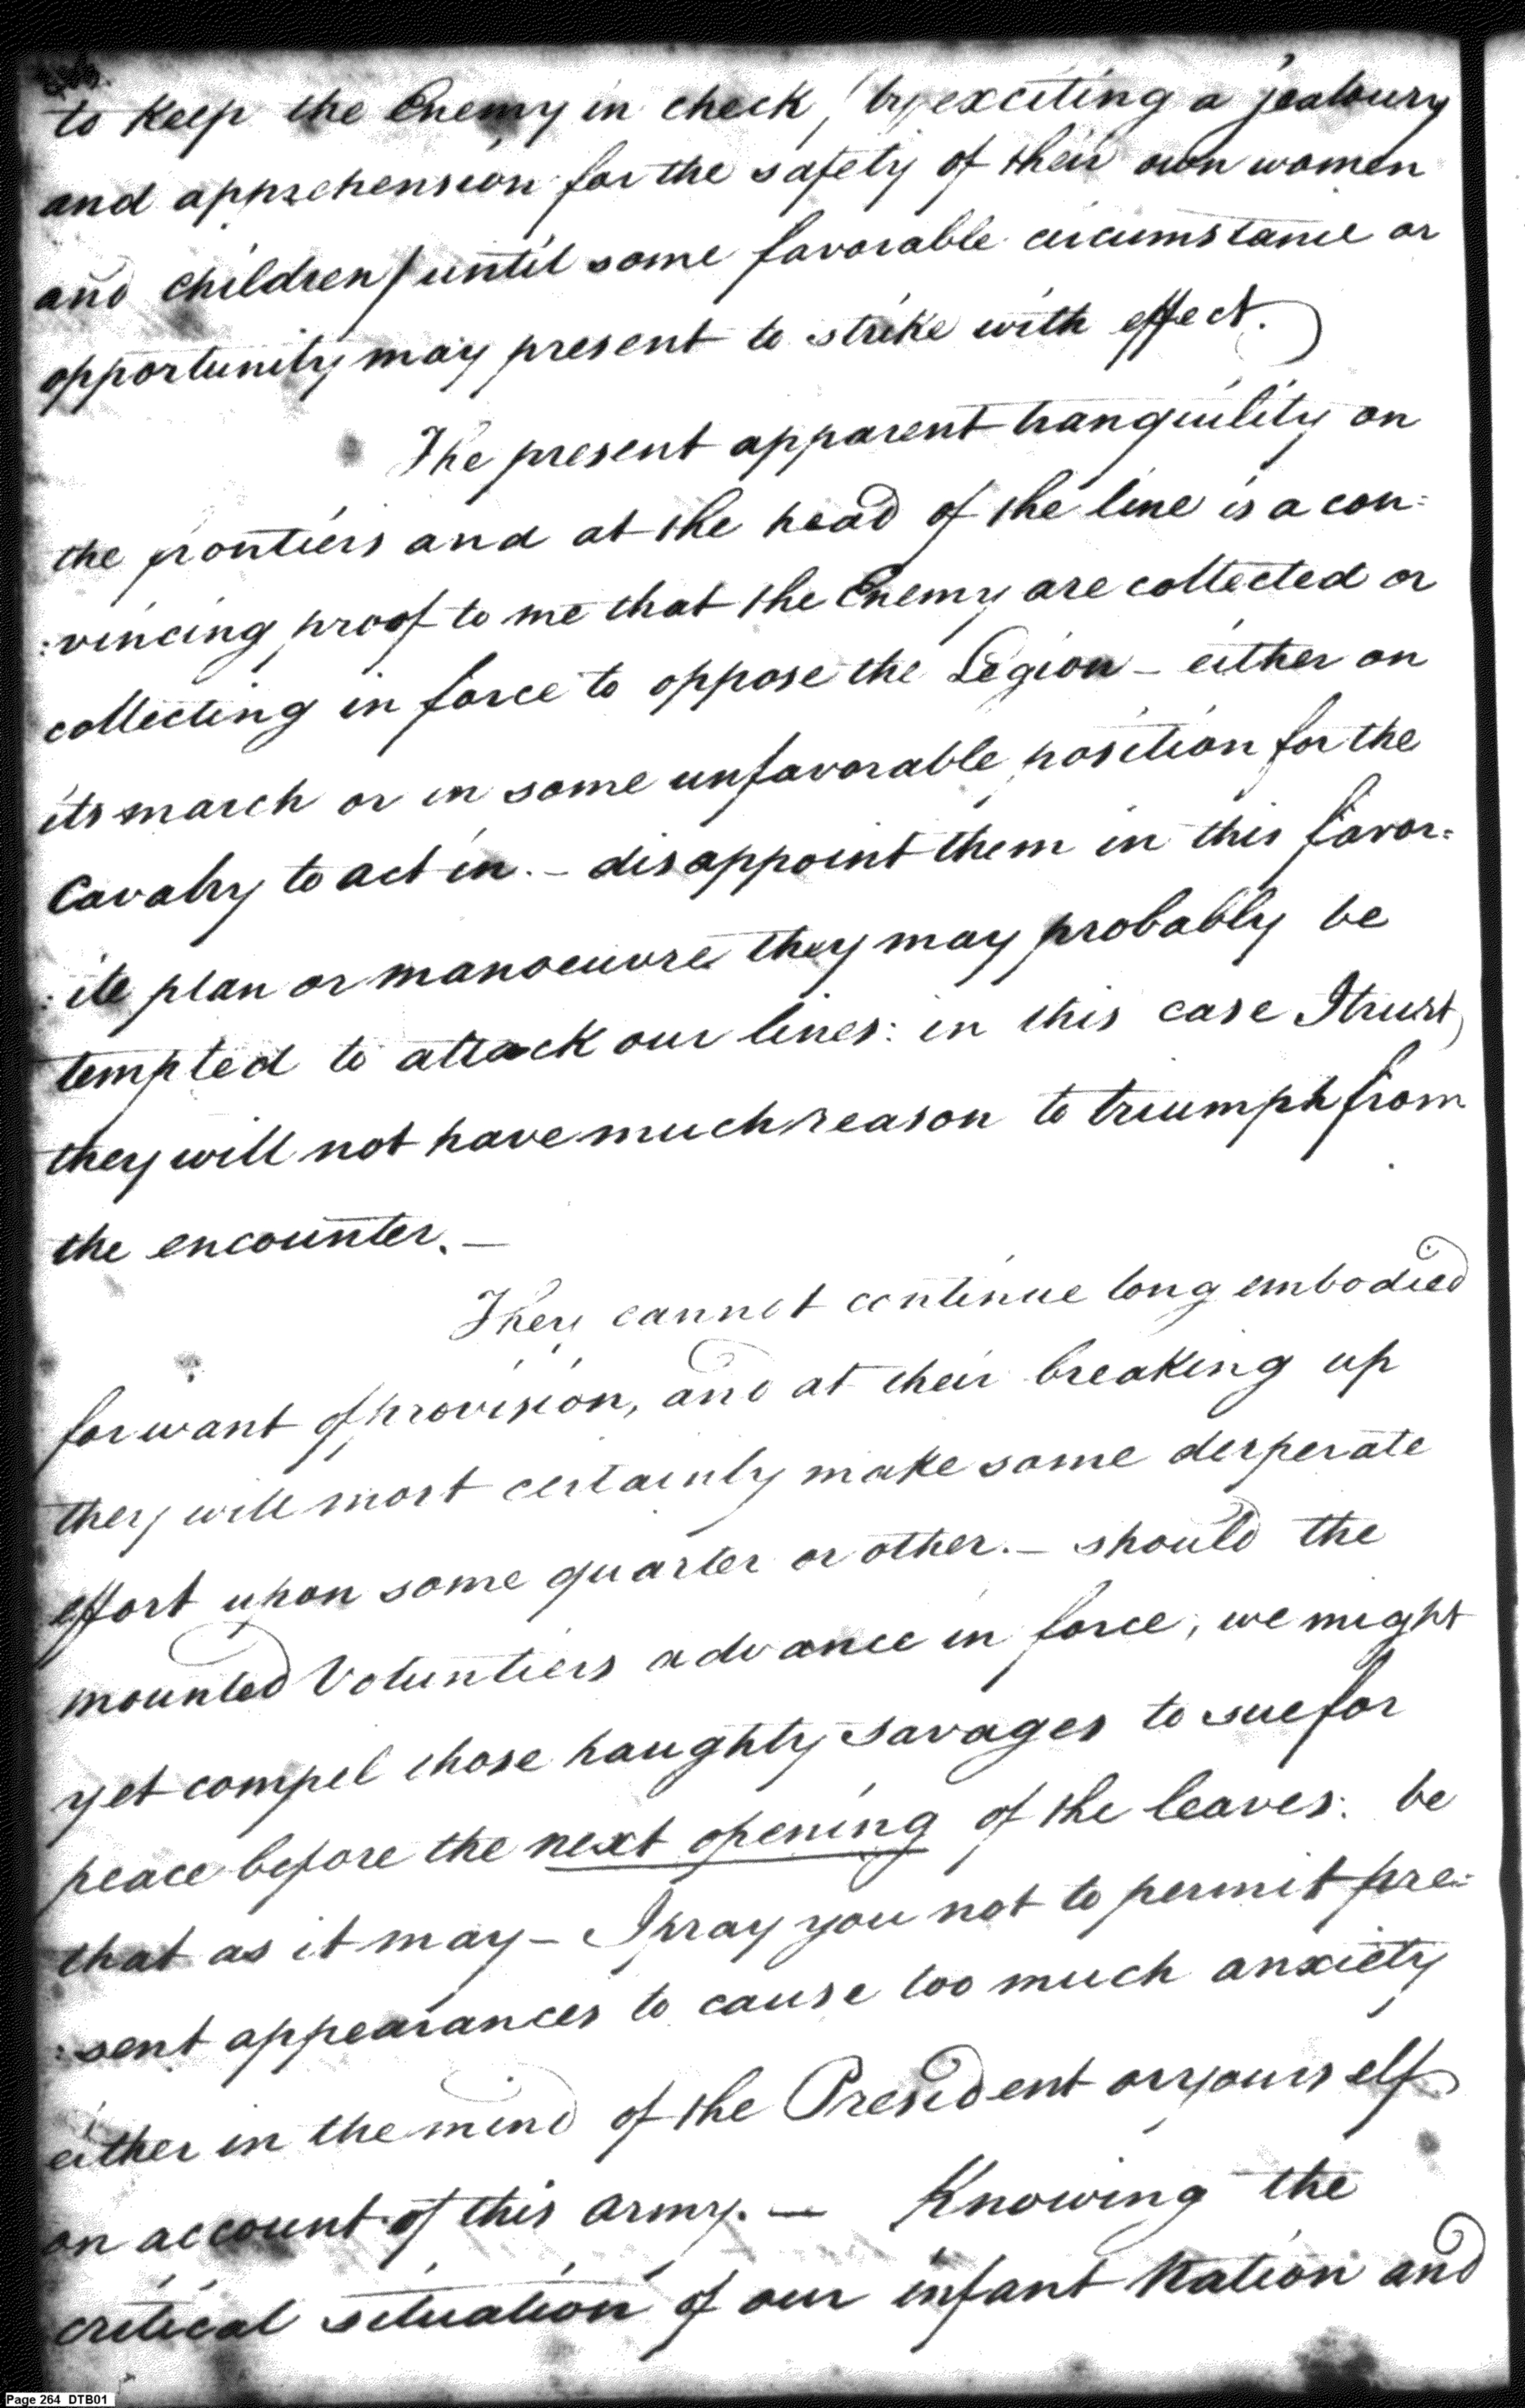 to keep the Enemy in check (by exciting a jealousy
and apprehension for the safety of their own women
and children) until some favorable circumstance or
opportunity may present to strike with effect.)
The present apparent tranquility on
the frontiers and at the head of the line is a con:
:vincing proof to me that the Enemy are collected or
collecting in force to oppose the Legion – either on
its march or in some unfavorable position for the
Cavalry to act in. – disappoint them in this favor:
:ite plan or manoeuvre they may probably be
tempted to attack our lines: in this case I trust
they will not have much reason to triumph from
the encounter. –
They cannot continue long embodied
for want of provision, and at their breaking up
they will most certainly make some desperate
effort upon some quarter or other. – should the
mounted Voluntiers advance in force, we might
yet compel those haughty savages to sue for
peace before the next opening of the leaves: be
that as it may – I pray you not to permit pre:
:sent appearances to cause too much anxiety
either in the mind of the President or yourself
on account of this army. – Knowing the
critical situation of our infant Nation and
Page 264 DTB01